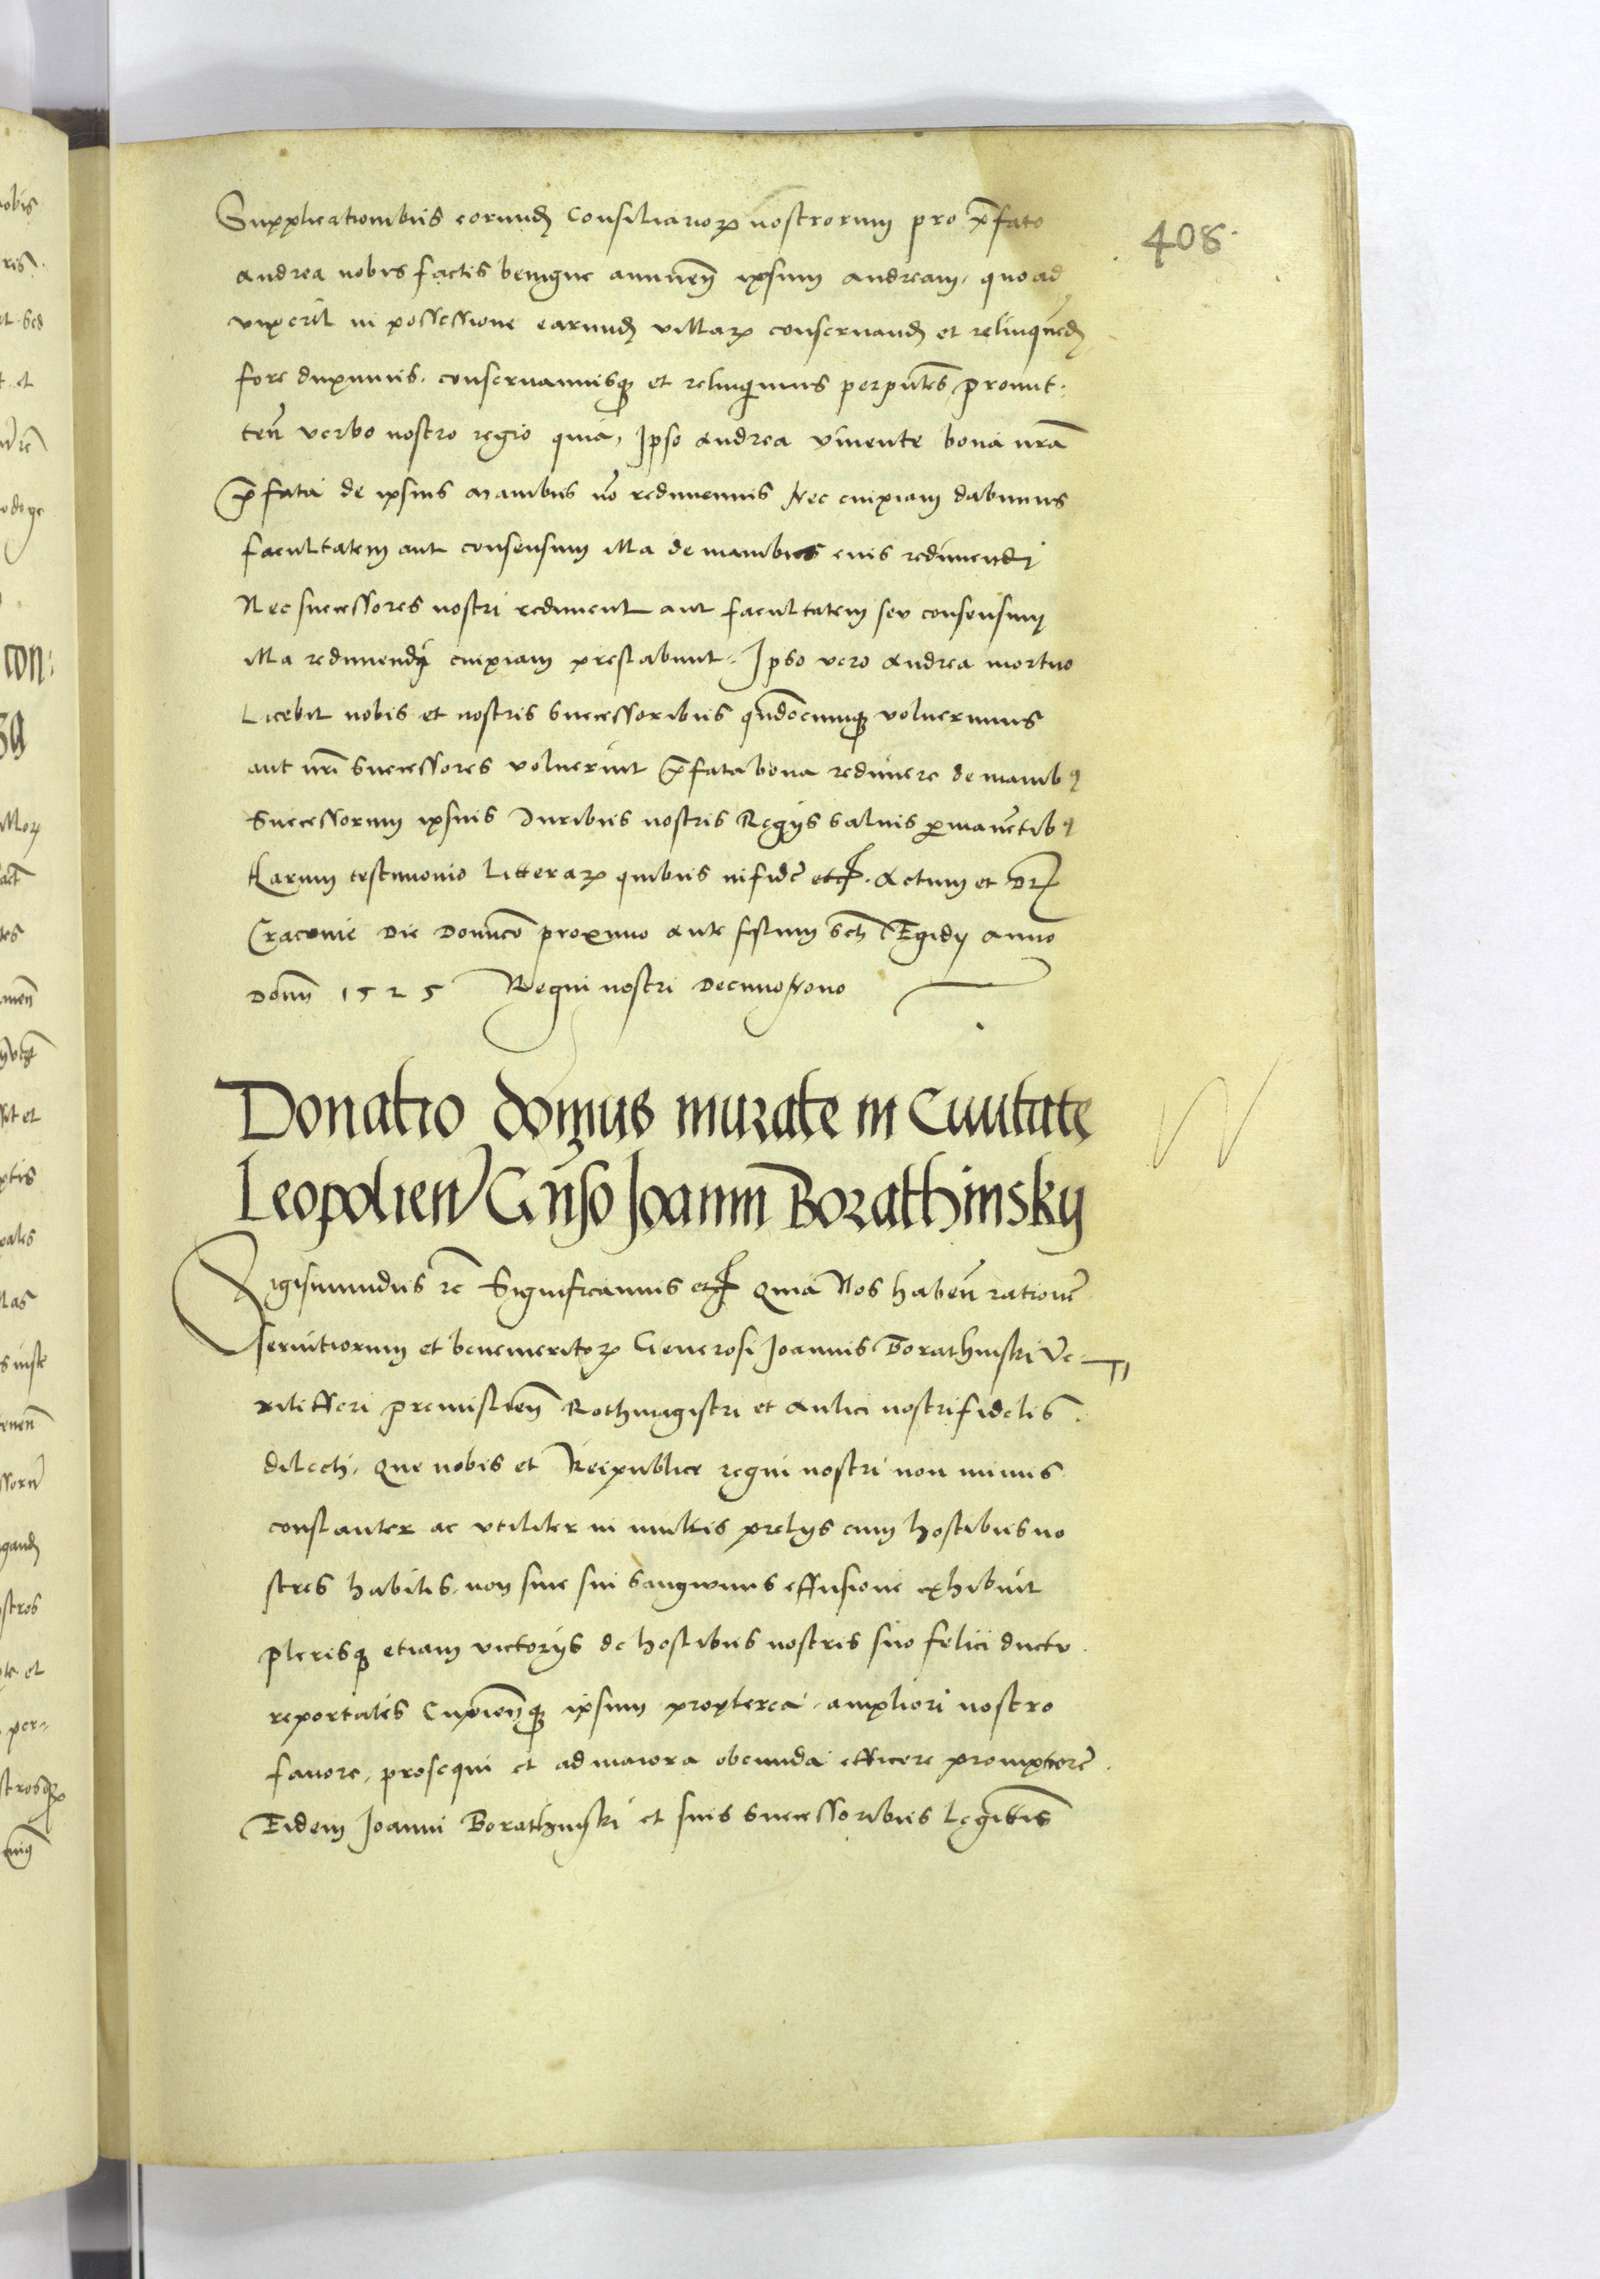 408.
Supplicationibus eorund Consiliarior nostrorum pro p̄fato
Andrea nobis factis benigne annuen̄ ipsum Andream, quoad
vixerit in possessione earund villar conservand et relinquēd
fore duximus, conservamusq et relinquimus per p̄ntes promit-
ten̄ verbo nostro regio quia, Ipso Andrea vivente bona nr̄a
p̄fata de ipsius manibus nō redimemus Nec cuipiam dabimus
facultatem aut consensum illa de manibus eius redimendi
Nec successores nostri rediment aut facultatem seu consensum
illa redimendi cuipiam prestabunt. Ipso vero Andrea mortuo
Licebit nobis et nostris successoribus qn̄documq voluerimus
aut nr̄i Successores voluerint p̄fata bona redimere de manib9
Successorum ipsius Iuribus nostris Regijs salvis p̄manētib9
Harum testimonio Litterar quibus in fidē etc. Actum et Dat
Cracovie Die Domīco proximo Ante festum Scti Egidij Anno
Domī 1525 Regni nostri Decimo Nono
Donatio domus murate in Civitate
Leopolien̄ Gn̄so Joanni Borathinskij
Sigismundus rc Significamus etc Quia Nos haben̄ rationē
servitiorum et benemeritor Generosi Joannis Borathinski Ve-
xilifferi premislien̄ Rothmagistri et Aulici nostri fidelis
dilecti, Que nobis et Reipublice regni nostri non minus
constanter ac utiliter in multis prelijs cum hostibus no
stris habitis, non sine sui sangwinis effusione exhibuit
plerisq etiam victorijs de hostibus nostris suo felici ductu
reportatis Cupien̄q ipsum propterea ampliori nostro
favore, prosequi et ad maiora obeunda efficere promptiorē
Eidem Joanni Borathinski et suis Successoribus Legittis̄